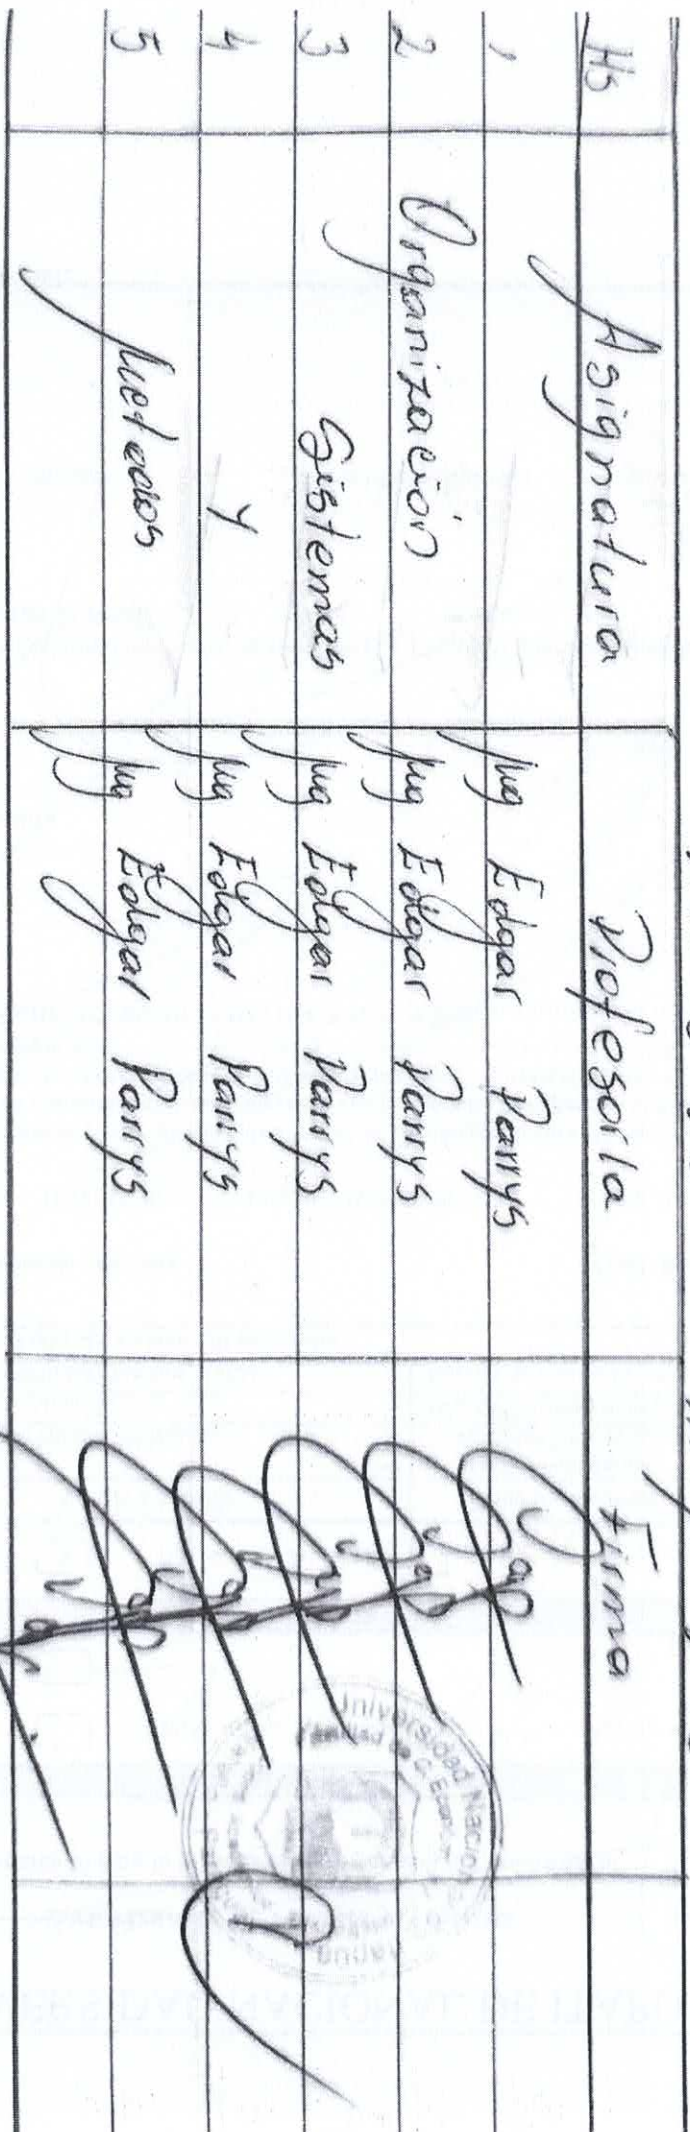 Hs Asignatura Profesor/a Firma
1 Mg Edgar Parrys
2 Organización Mg Edgar Parrys
3 Sistemas Mg Edgar Parrys
4 y Mg Edgar Parrys
5 Metodos Mg Edgar Parrys
Universidad Nacion